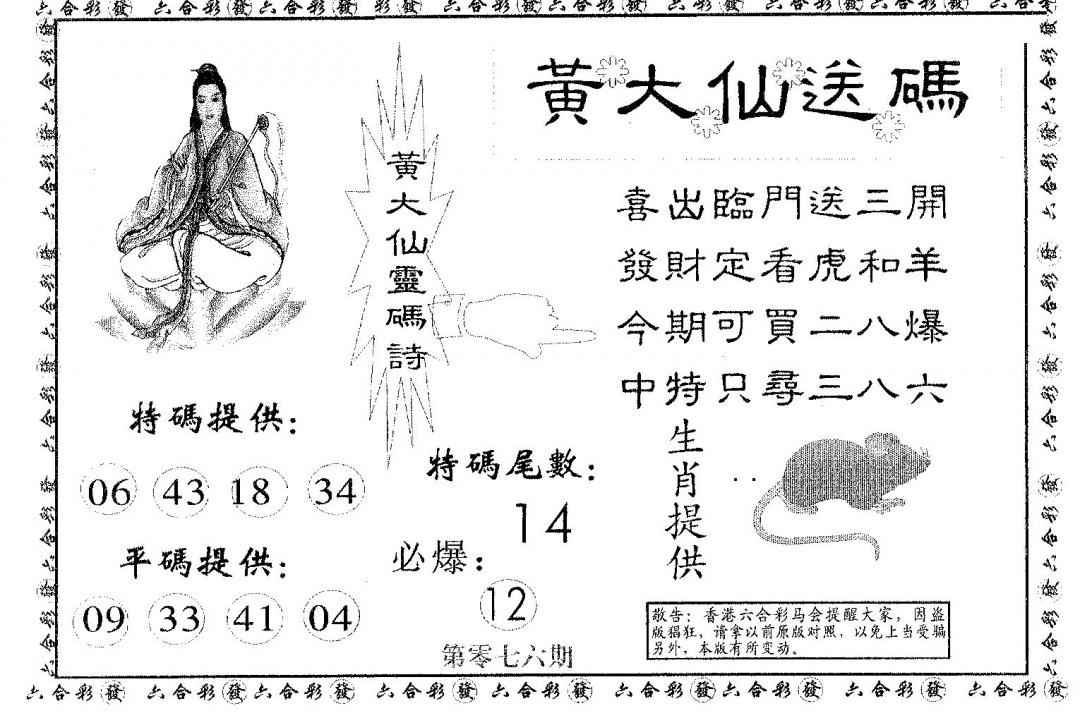 六合彩發 六合彩發六合彩發 六合彩發 六合彩發 六合彩發六合彩發 六合彩發六合彩發 六合彩
黃大仙送碼
黃大仙靈碼詩
喜出臨門送三開
發財定看虎和羊
今期可買二八爆
中特只尋三八六
特碼提供：
06 43 18 34
平碼提供：
09 33 41 04
特碼尾數：
14
必爆：
12
第零七六期
生肖提供
敬告：香港六合彩马会提醒大家，因盗
版猖狂，请拿以前原版对照，以免上当受骗
另外，本版有所变动。
六合彩發 六合彩發六合彩發 六合彩發 六合彩發 六合彩發六合彩發 六合彩發 六合彩發